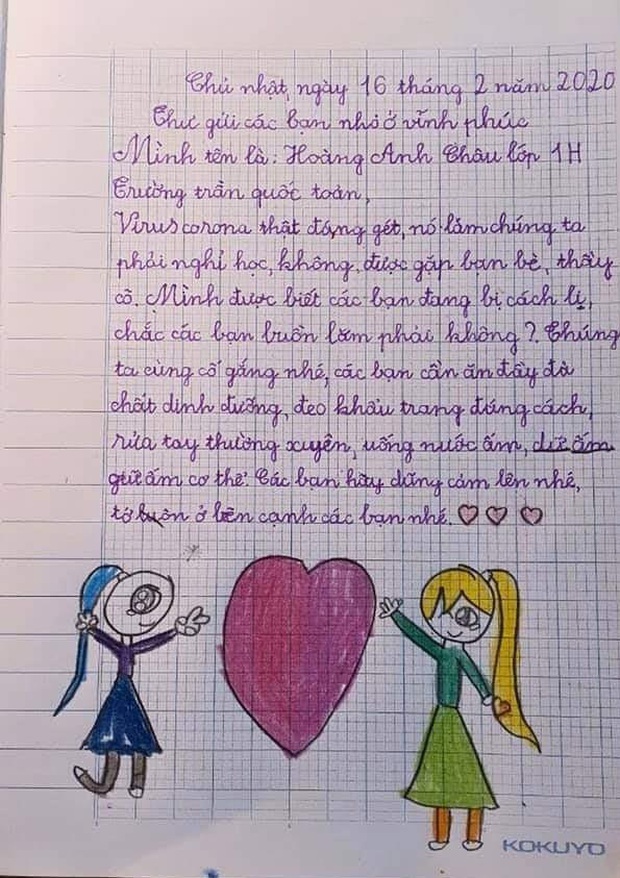 Chủ nhật, ngày 16 tháng 2 năm 2020
Thư gửi các bạn nhỏ ở vĩnh phúc
Mình tên là: Hoàng Anh Châu lớp 1H
Trường trần quốc toản,
Virus corona thật đáng gét, nó làm chúng ta
phải nghỉ học, không được gặp bạn bè, thầy
cô. Mình được biết các bạn đang bị cách li,
chắc các bạn buồn lắm phải không? Chúng
ta cùng cố gắng nhé, các bạn cần ăn đầy đủ
chất dinh dưỡng, đeo khẩu trang đúng cách,
rửa tay thường xuyên, uống nước ấm, dữ ấm
giữ ấm cơ thể. Các bạn hãy dũng cảm lên nhé,
tớ luôn ở bên cạnh các bạn nhé.
KOKUYO